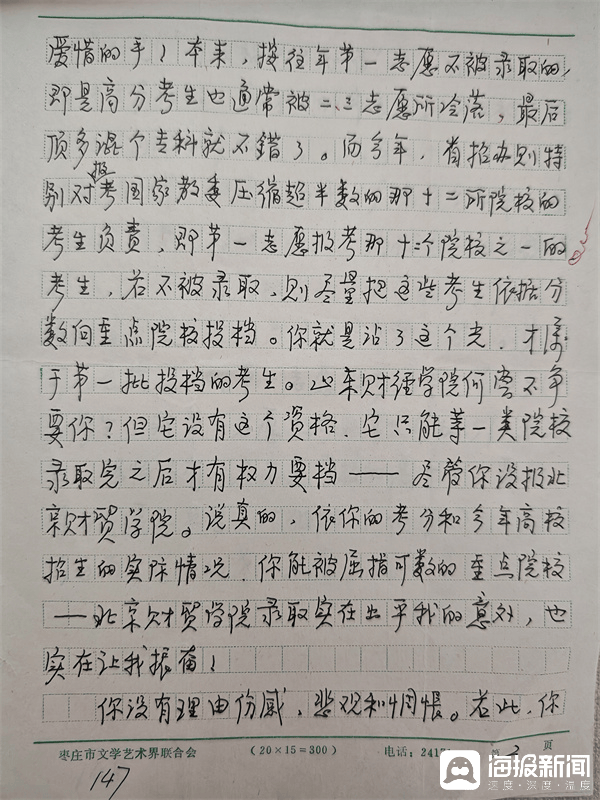 爱惜的手！本来，按往年第一志愿不被录取的，
即是高分考生也通常被二、三志愿所冷落，最后
顶多混个专科就不错了。而今年，省招办则特
别对报考国家教委压缩超半数的那十二所院校的
考生负责，即第一志愿报考那十二个院校之一的
考生，若不被录取，则尽量把这些考生依据分
数向重点院校投档。你就是沾了这个光，才属
于第一批投档的考生。山东财经学院何尝不争
要你？但它没有这个资格，它只能等一类院校
录取完之后才有权力要档——尽管你没报北
京财贸学院。说真的，依你的考分和今年高校
招生的实际情况，你能被屈指可数的重点院校
——北京财贸学院录取实在出乎我的意外，也
实在让我振奋！
你没有理由伤感，悲观和惆怅。若此，你
枣庄市文学艺术界联合会 （20×15=300） 电话：241 第2页
147
海报新闻
速度·深度·温度